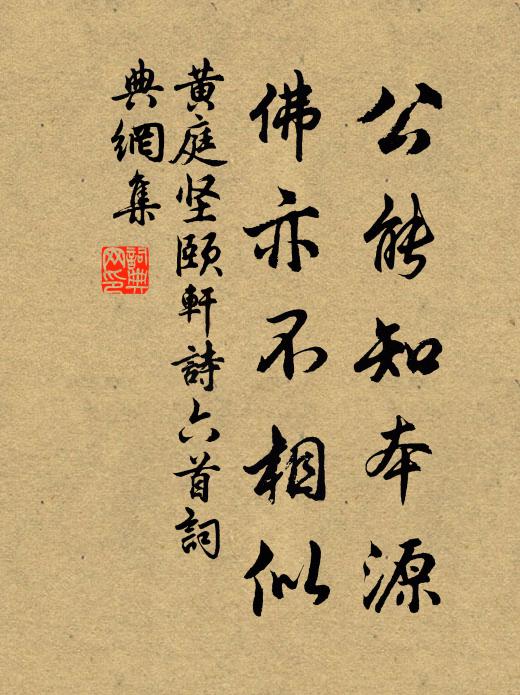 公能知本源
佛亦不相似
黄庭坚頤軒詩六首詞
典網集
詞典
网印